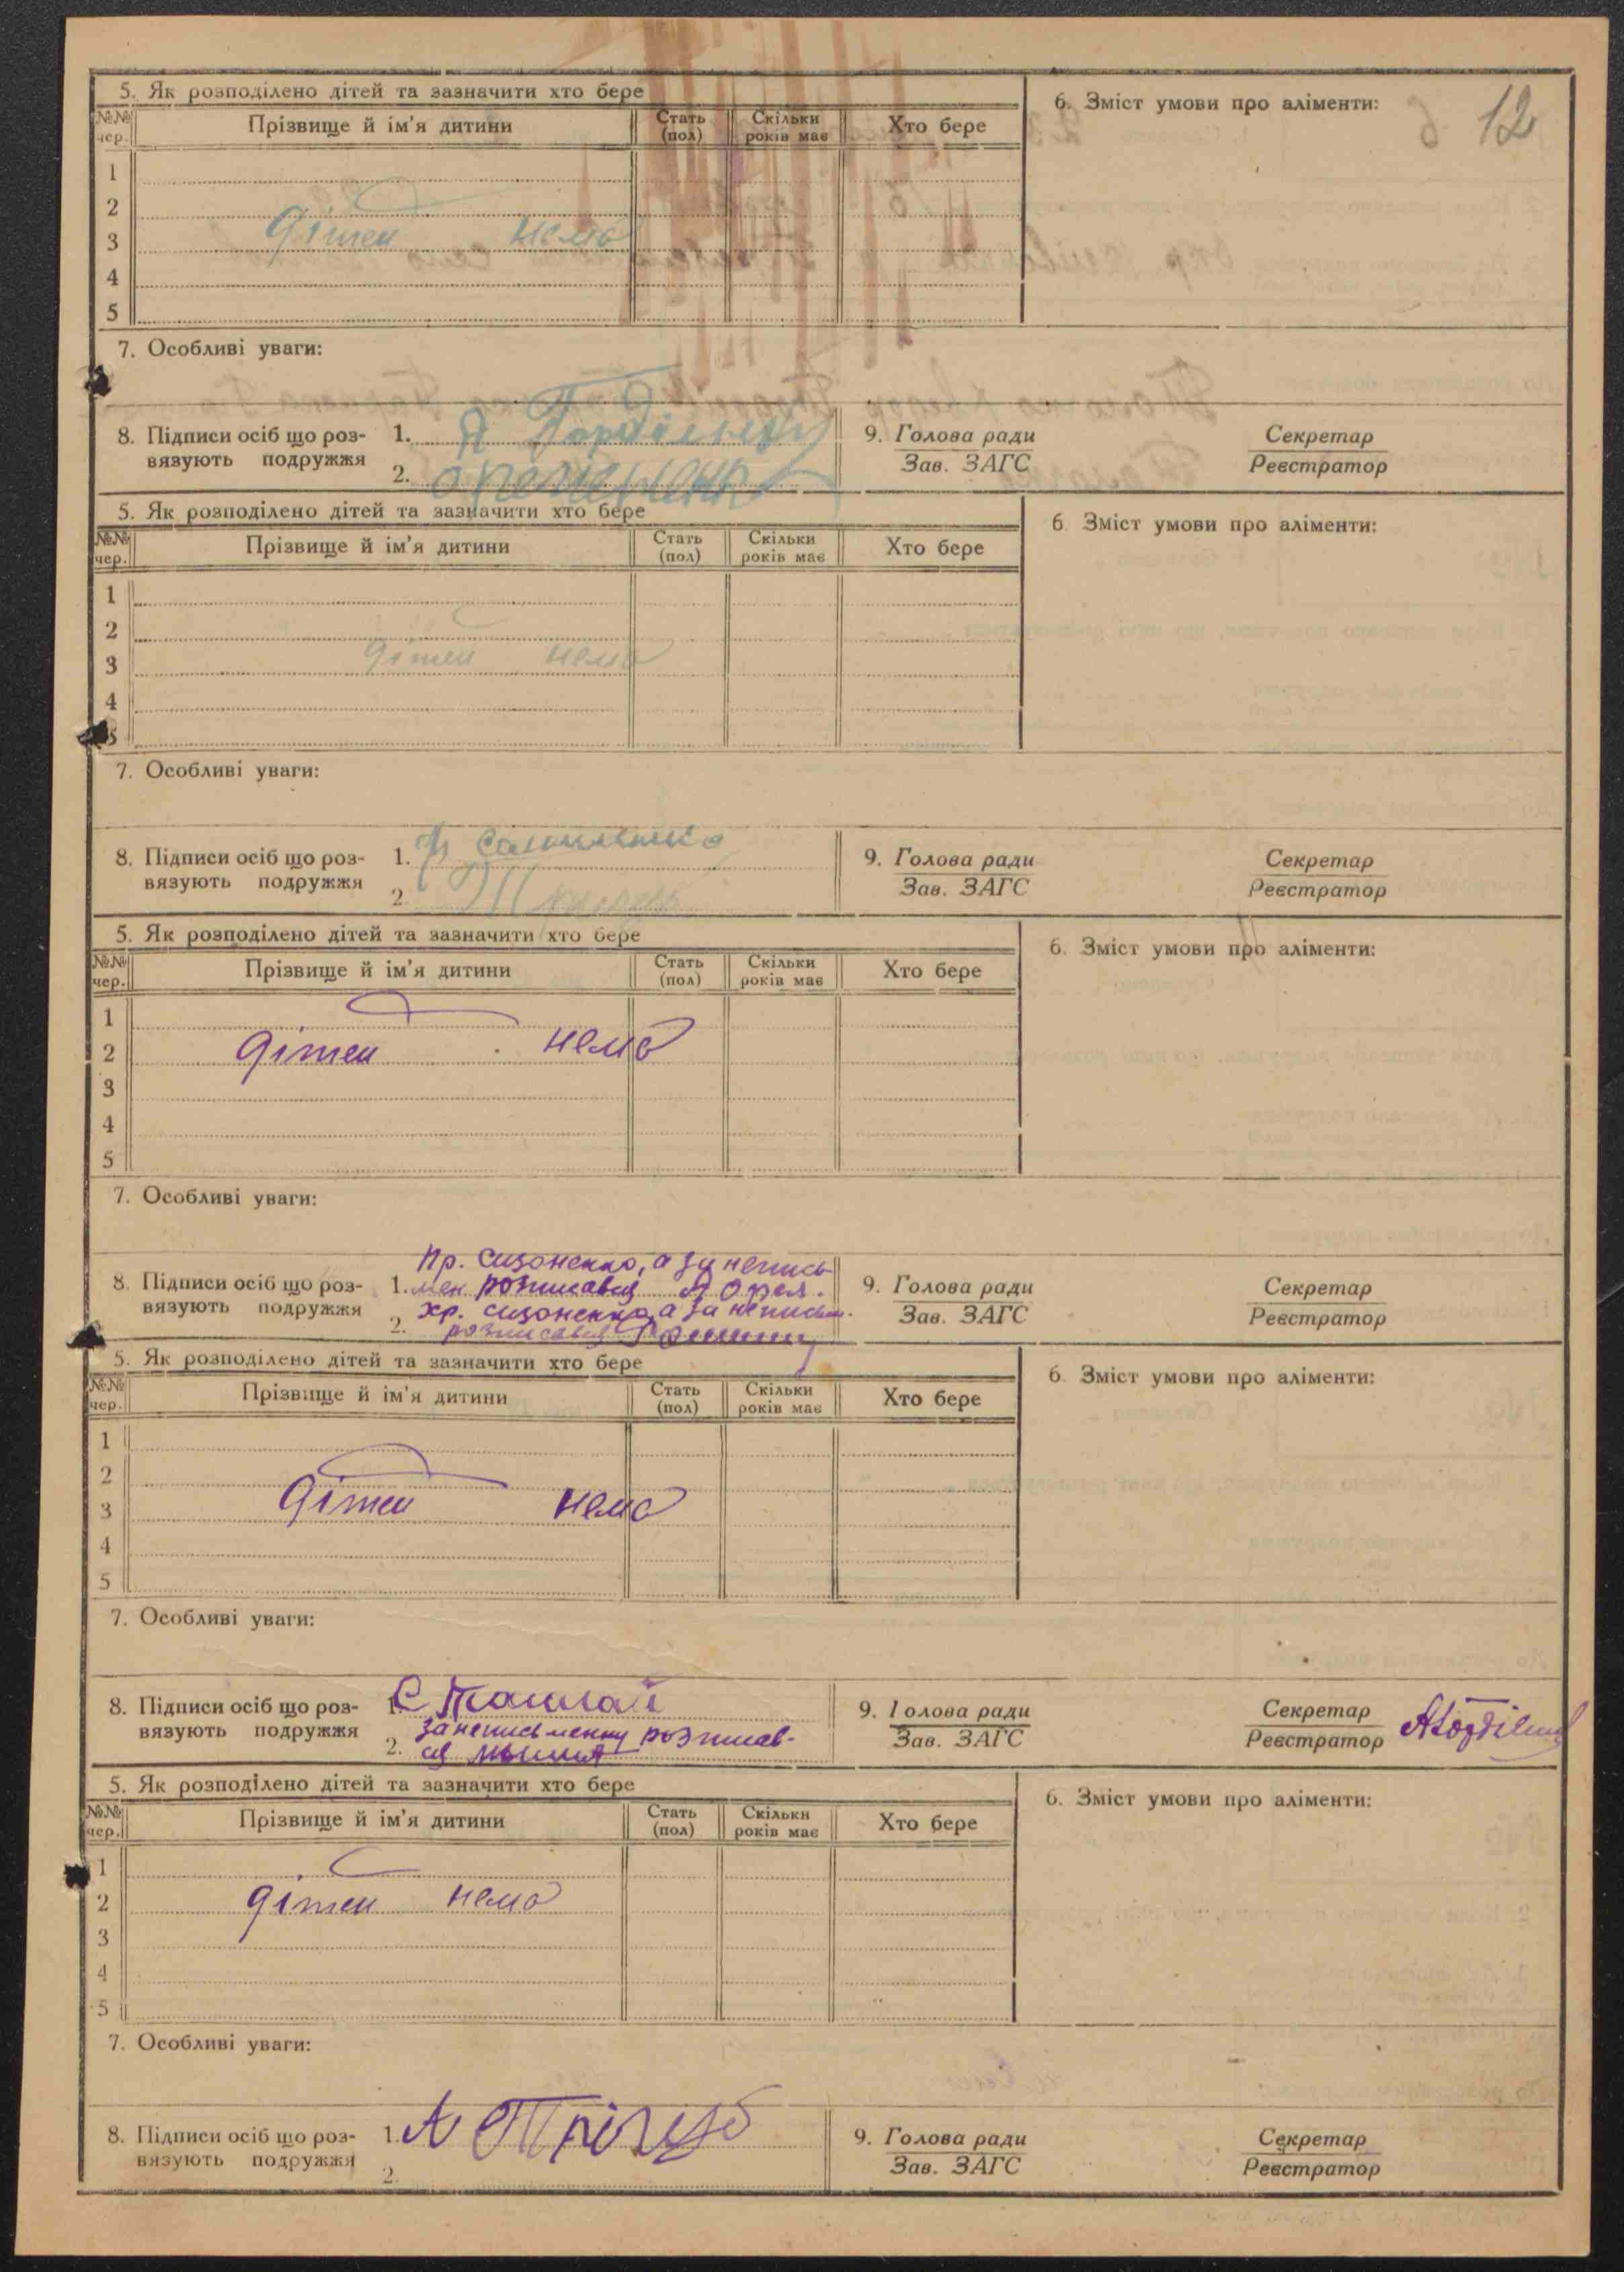 12
5. Як розподілено дітей та зазначити хто бере
6. Зміст умови про аліменти:
№№ чер. Прізвище й ім'я дитини Стать (пол) Скільки років має Хто бере
1
2
3 дітей нема
4
5
7. Особливі уваги:
8. Підписи осіб що роз-вязують подружжя
1.
2.
9. Голова ради
Зав. ЗАГС
Секретар
Реєстратор
5. Як розподілено дітей та зазначити хто бере
6. Зміст умови про аліменти:
№№ чер. Прізвище й ім'я дитини Стать (пол) Скільки років має Хто бере
1
2
3 дітей нема
4
5
7. Особливі уваги:
8. Підписи осіб що роз-вязують подружжя
1.
2.
9. Голова ради
Зав. ЗАГС
Секретар
Реєстратор
5. Як розподілено дітей та зазначити хто бере
6. Зміст умови про аліменти:
№№ чер. Прізвище й ім'я дитини Стать (пол) Скільки років має Хто бере
1
2 дітей нема
3
4
5
7. Особливі уваги:
8. Підписи осіб що роз-вязують подружжя
Пр. Сизоненко, а за неписьмен
1. розписався
хр. сизоненко, а за неписьм.
2. розписався
9. Голова ради
Зав. ЗАГС
Секретар
Реєстратор
5. Як розподілено дітей та зазначити хто бере
6. Зміст умови про аліменти:
№№ чер. Прізвище й ім'я дитини Стать (пол) Скільки років має Хто бере
1
2
3 дітей нема
4
5
7. Особливі уваги:
8. Підписи осіб що роз-вязують подружжя
1.
за неписьменну розписав-
2. ся
9. Голова ради
Зав. ЗАГС
Секретар
Реєстратор
5. Як розподілено дітей та зазначити хто бере
6. Зміст умови про аліменти:
№№ чер. Прізвище й ім'я дитини Стать (пол) Скільки років має Хто бере
1
2 дітей нема
3
4
5
7. Особливі уваги:
8. Підписи осіб що роз-вязують подружжя
1.
2.
9. Голова ради
Зав. ЗАГС
Секретар
Реєстратор